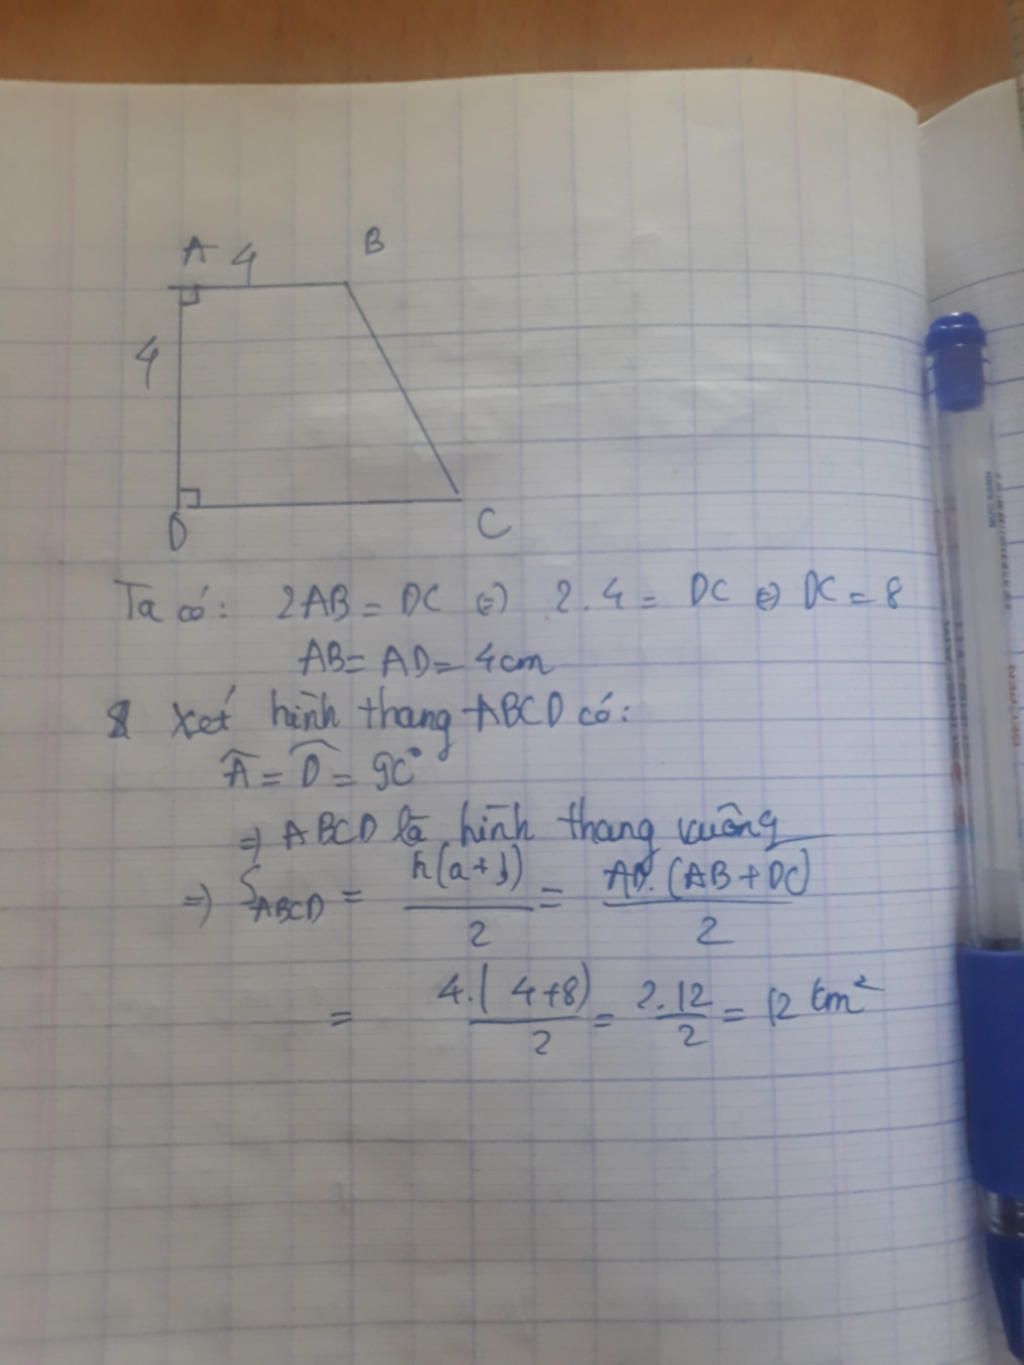 A 4 B
4
D C
Ta có: 2AB = DC ⇔ 2.4 = DC ⇔ DC = 8
AB = AD = 4cm
Xét hình thang ABCD có:
Â = D̂ = 90°
⇒ ABCD là hình thang vuông
⇒ S_ABCD = h(a+b)/2 = AD.(AB+DC)/2
= 4.(4+8)/2 = 2.12/2 = 12 cm²